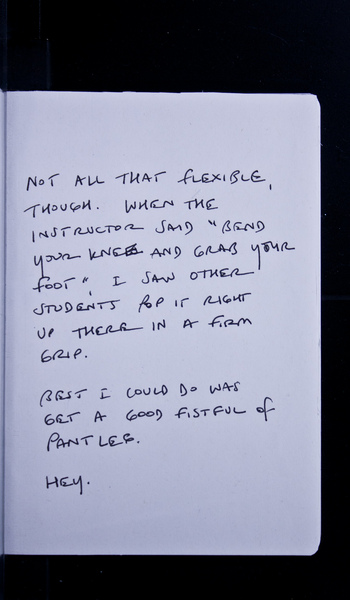 NOT ALL THAT FLEXIBLE,
THOUGH. WHEN THE
INSTRUCTOR SAID "BEND
YOUR KNEE AND GRAB YOUR
FOOT", I SAW OTHER
STUDENTS POP IT RIGHT
UP THERE IN A FIRM
GRIP.
BEST I COULD DO WAS
GET A GOOD FISTFUL OF
PANT LEG.
HEY.